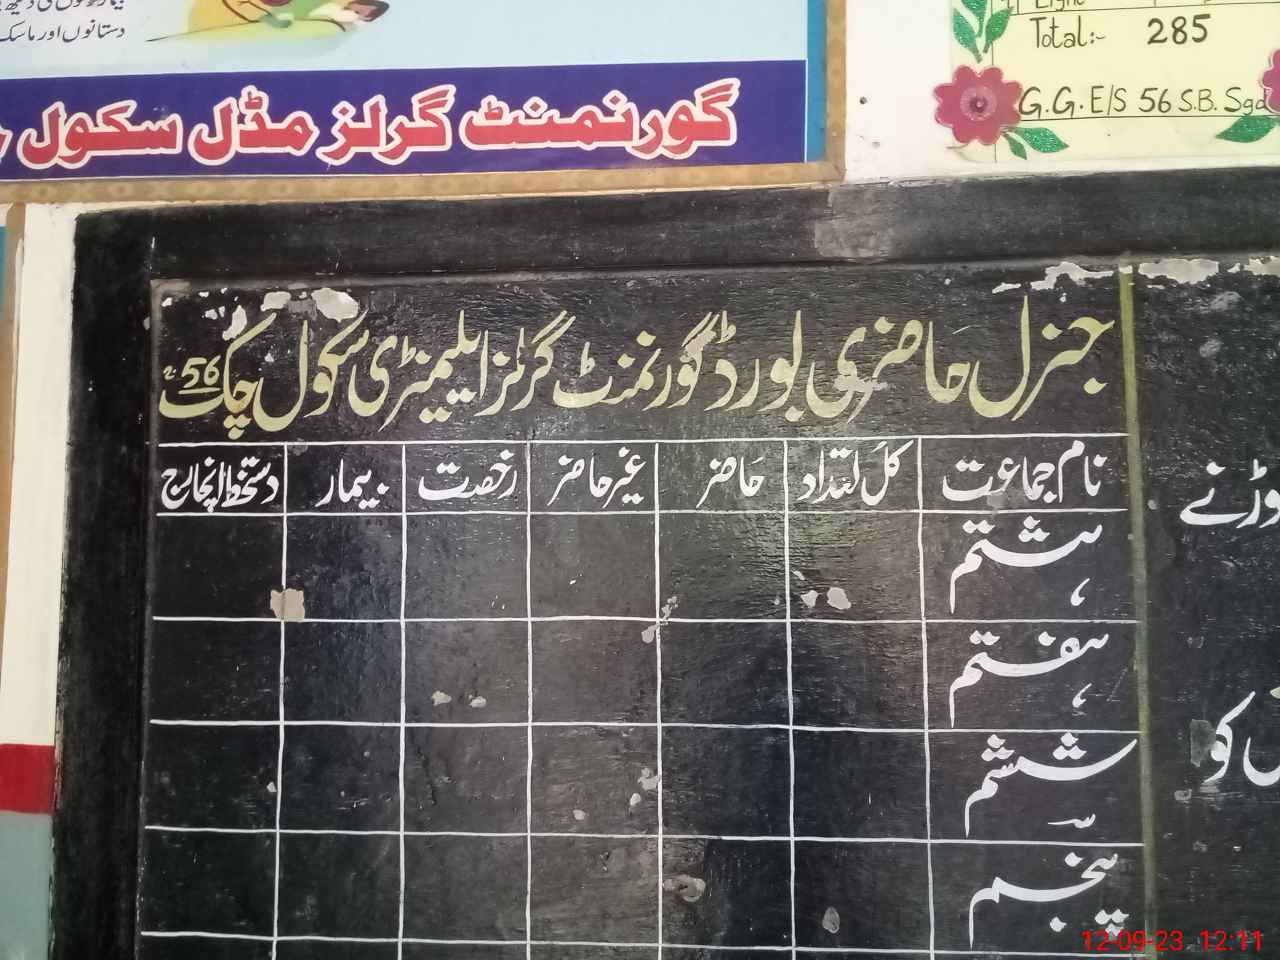 دستانوں اور ماسک
گورنمنٹ گرلز مڈل سکول
Total:- 285
G.G. E/S 56 S.B. Sgd
جنرل حاضری بورڈ گورنمنٹ گرلز ایلیمنٹری سکول چک 56
نام جماعت کل تعداد حاضر غیر حاضر رخصت بیمار دستخط انچارج
ہشتم
ہفتم
ششم
پنجم
کو
12-09-23 12:11